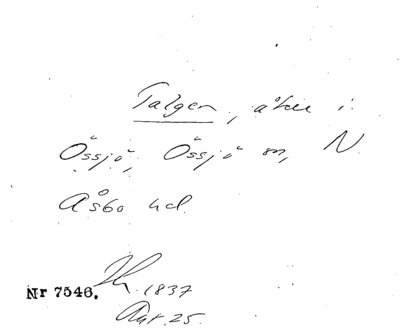 Talgen, åker i
Össjö, Össjö sn, N
Åsbo hd.
1837
Nr 7546.
Akt. 25.